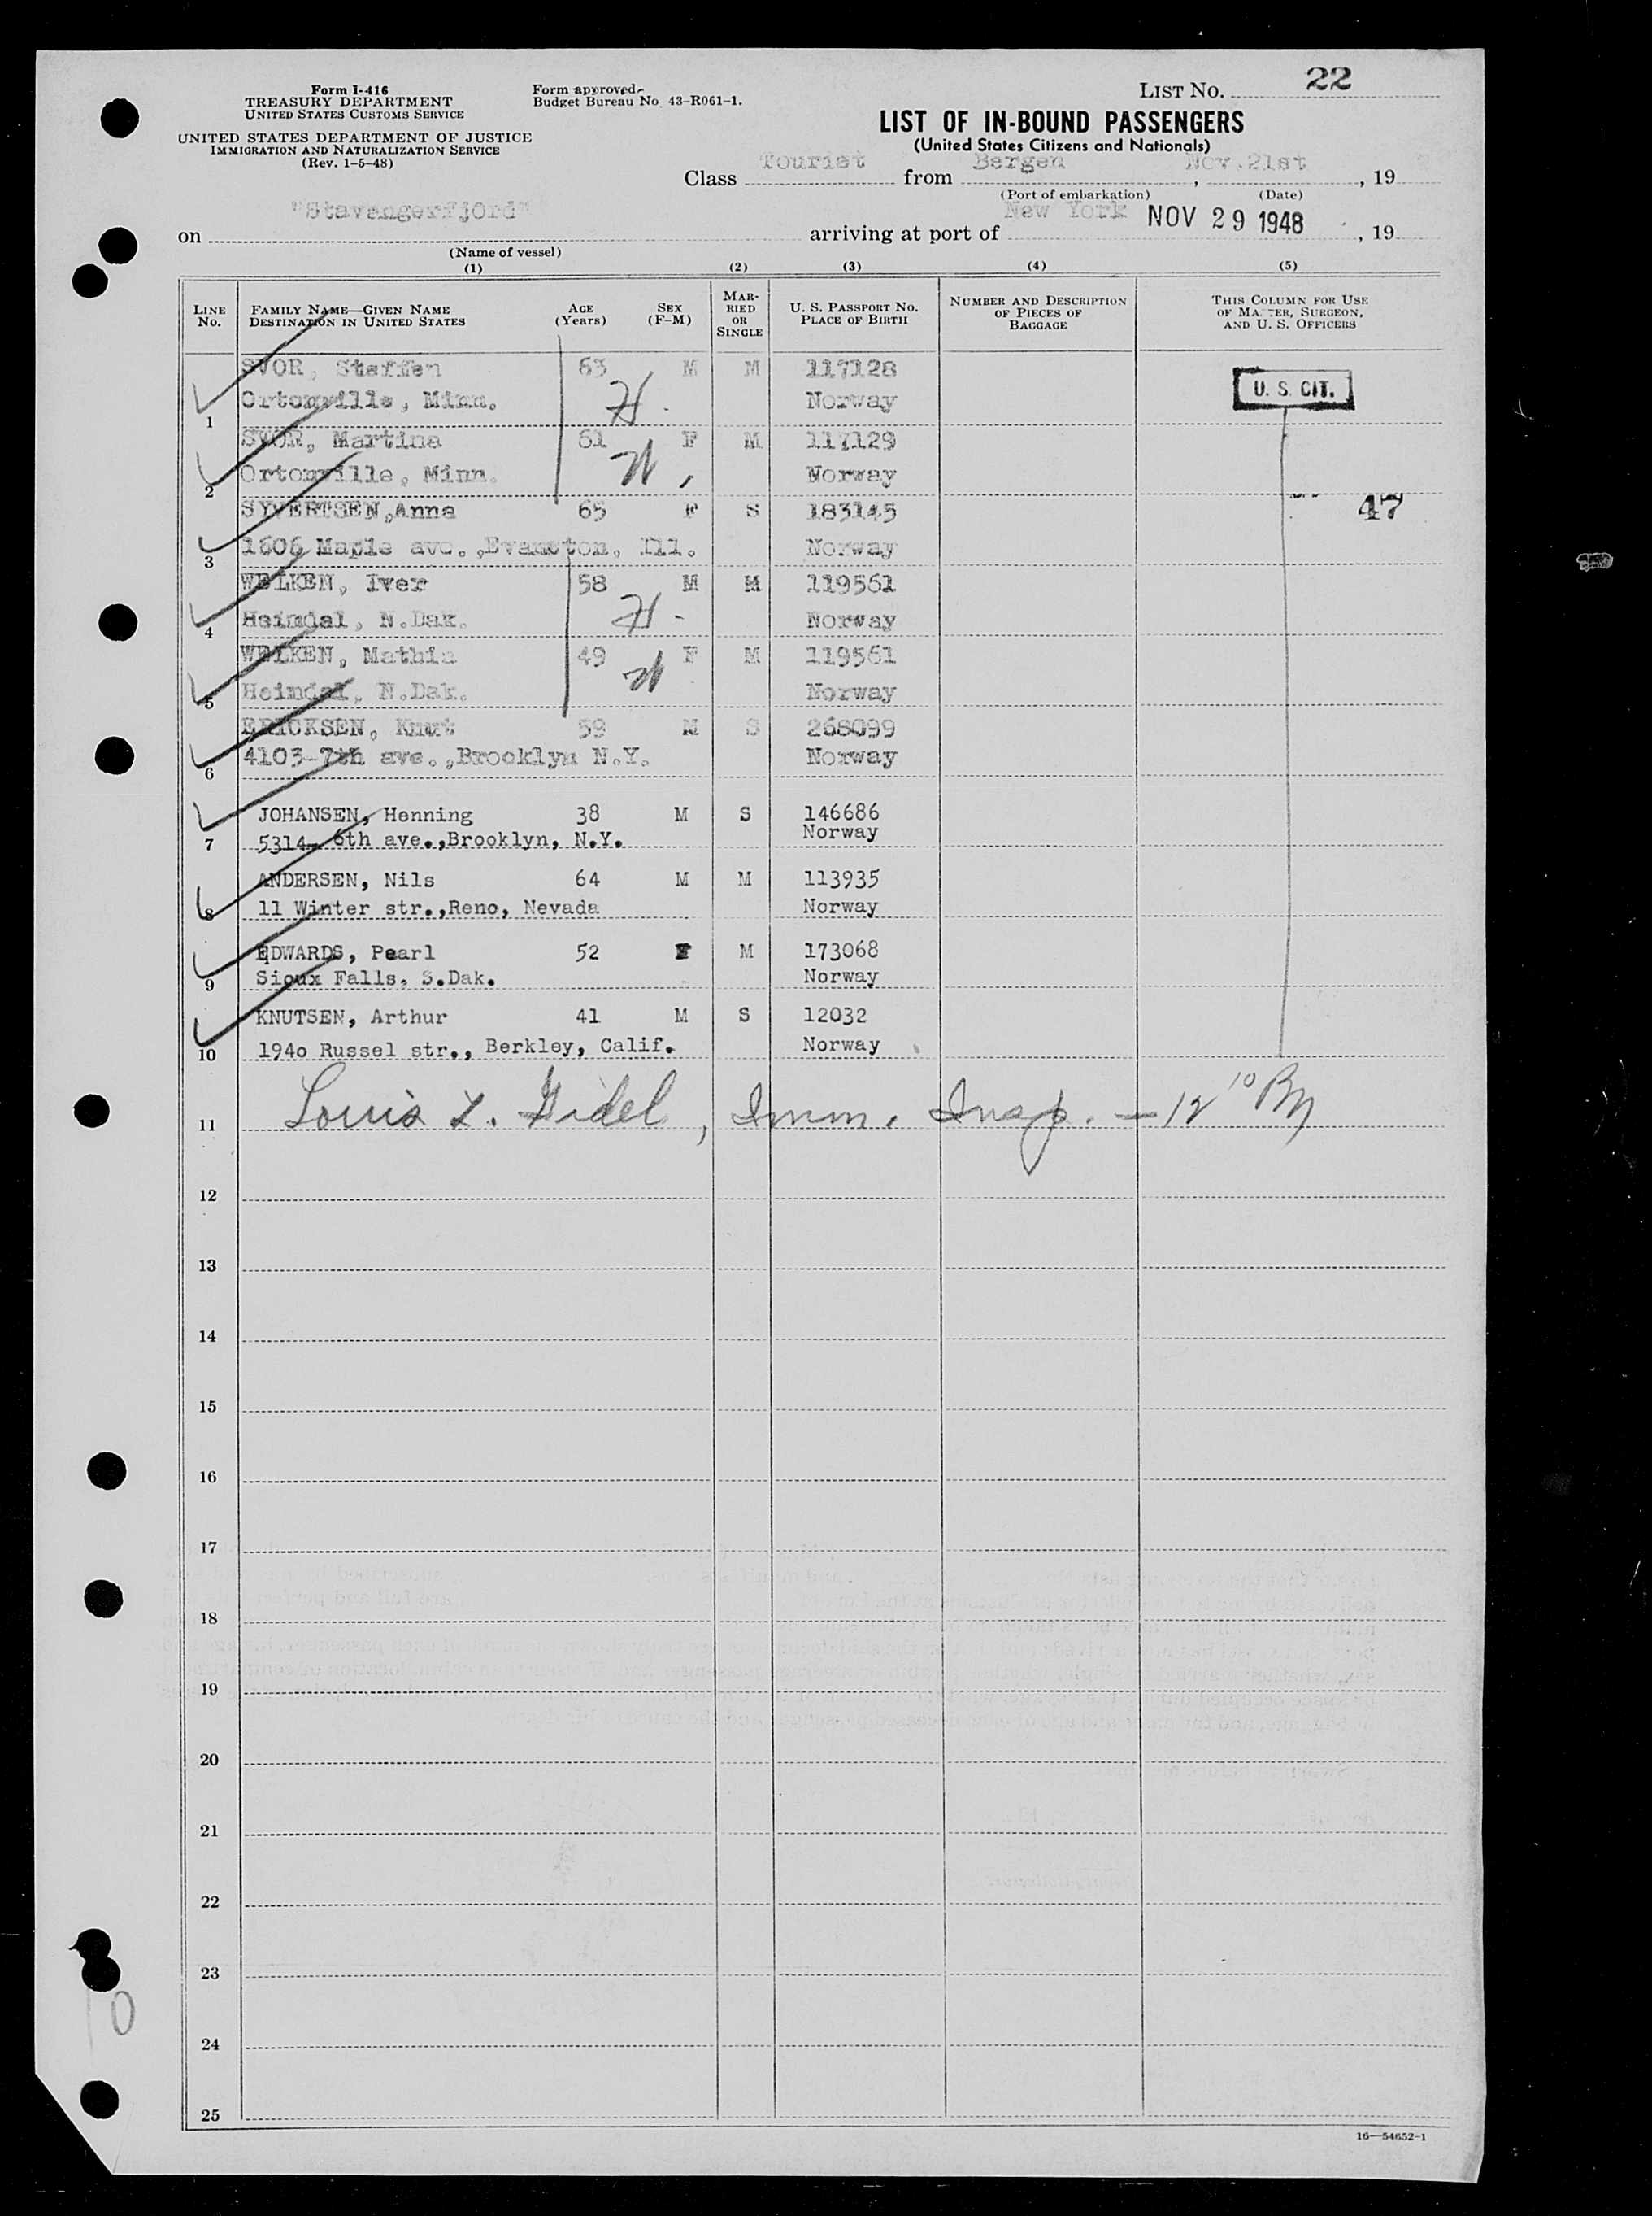 Form I-416
TREASURY DEPARTMENT
UNITED STATES CUSTOMS SERVICE
UNITED STATES DEPARTMENT OF JUSTICE
IMMIGRATION AND NATURALIZATION SERVICE
(Rev. 1-5-48)
Form approved
Budget Bureau No. 43-R061-1.
LIST NO. 22
LIST OF IN-BOUND PASSENGERS
(United States Citizens and Nationals)
Class Tourist from Bergen, Nov.21st, 19
(Port of embarkation) (Date)
on "Stavangerfjord" arriving at port of New York NOV 29 1948, 19
(Name of vessel)
(1) (2) (3) (4) (5)
LINE NO. FAMILY NAME—GIVEN NAME DESTINATION IN UNITED STATES AGE (Years) SEX (F-M) MARRIED OR SINGLE U. S. PASSPORT NO. PLACE OF BIRTH NUMBER AND DESCRIPTION OF PIECES OF BAGGAGE THIS COLUMN FOR USE OF MASTER, SURGEON, AND U. S. OFFICERS
SVOR, Steffen 63 M M 117128
1 Ortonville, Minn. H. Norway U. S. CIT.
SVOR, Martina 61 F M 117129
2 Ortonville, Minn. W, Norway
SYVERTSEN,Anna 65 F S 183145 47
3 1606 Maple ave.,Evanston, Ill. Norway
WELKEN, Iver 58 M M 119561
4 Heimdal, N.Dak. H - Norway
WELKEN, Mathia 49 F M 119561
5 Heimdal, N.Dak. W Norway
ERICKSEN, Knut 59 M S 268099
6 4103-7th ave.,Brooklyn N.Y. Norway
JOHANSEN, Henning 38 M S 146686
7 5314- 6th ave.,Brooklyn, N.Y. Norway
ANDERSEN, Nils 64 M M 113935
8 11 Winter str.,Reno, Nevada Norway
EDWARDS, Pearl 52 F M 173068
9 Sioux Falls, S.Dak. Norway
KNUTSEN, Arthur 41 M S 12032
10 1940 Russel str., Berkley, Calif. Norway
11 Louis Gidel, Imm. Insp. — 12 10 PM
12
13
14
15
16
17
18
19
20
21
22
23
24
25
16—54652-1